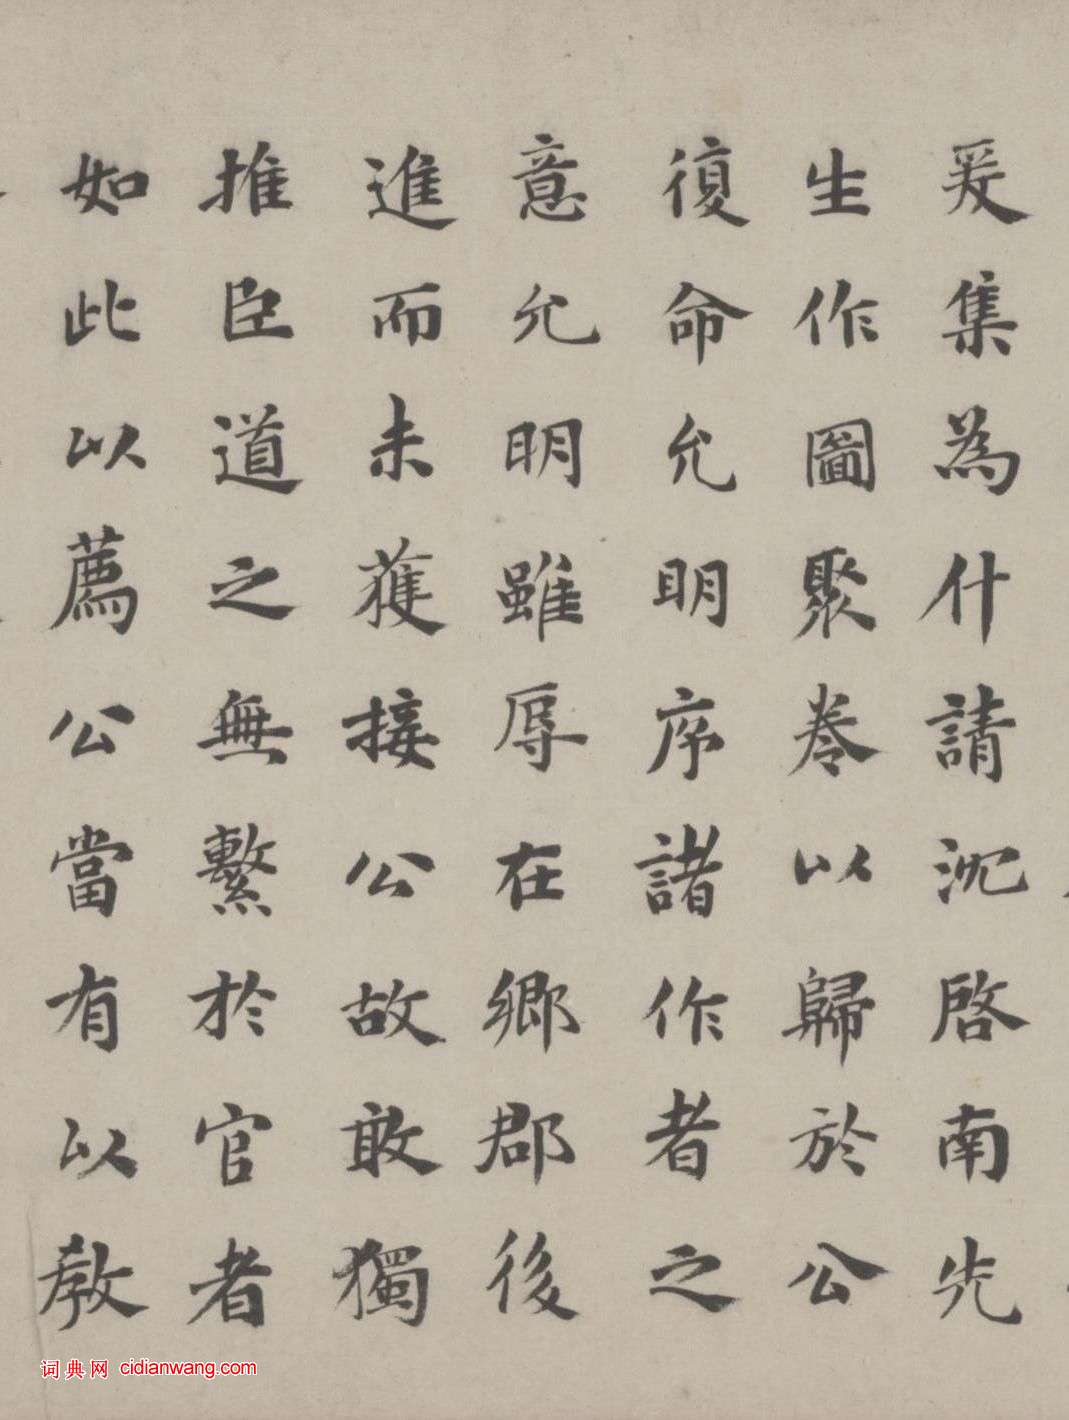 爰集為什請沈啓南先
生作圖聚卷以歸於公
復命允明序諸作者之
意允明雖辱在鄉郡後
進而未獲接公故敢獨
推臣道之無繫於官者
如此以薦公當有以教
词典网 cidianwang.com